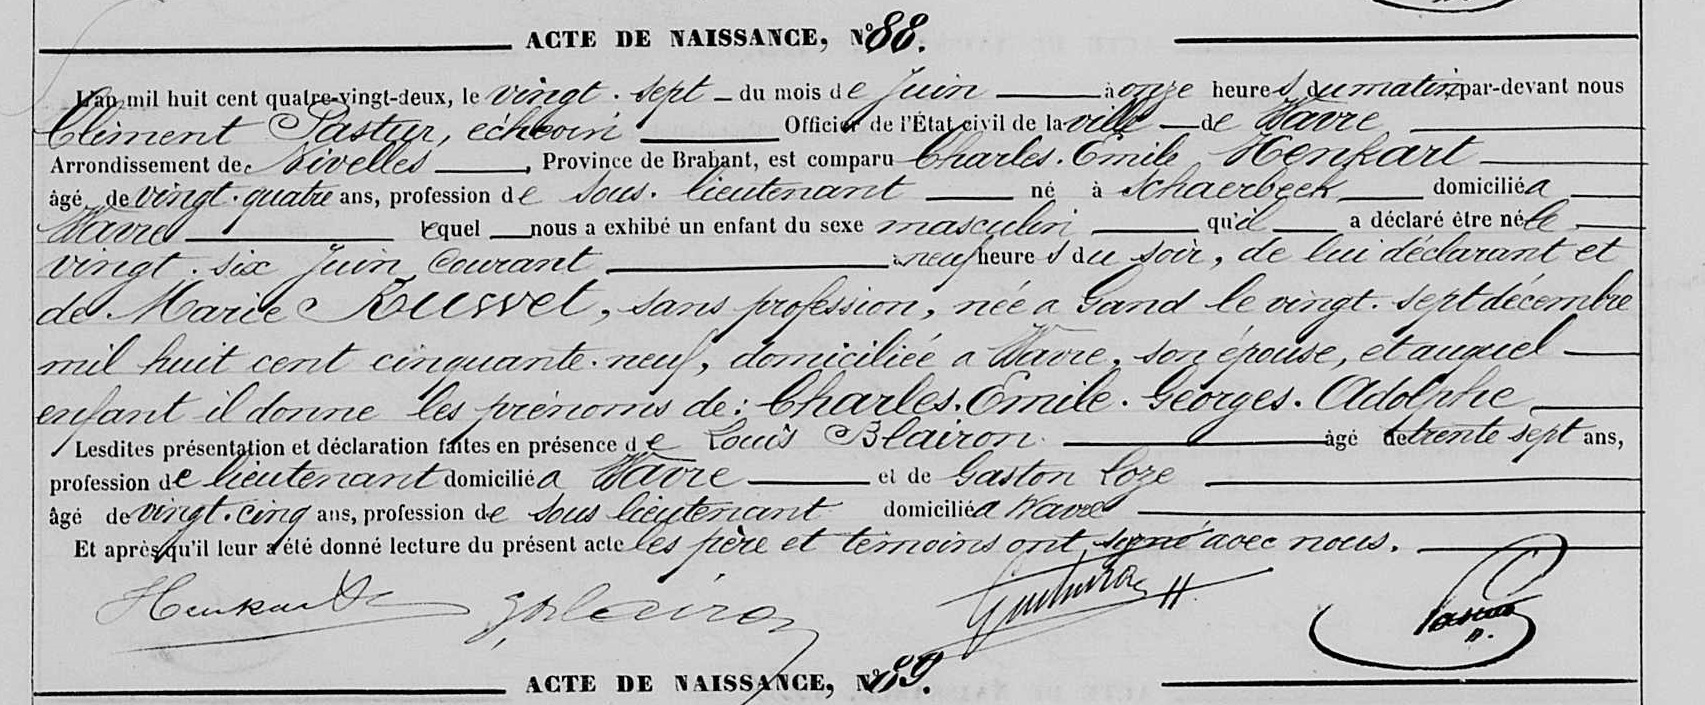 ACTE DE NAISSANCE, N° 88.
L'an mil huit cent quatre-vingt-deux, le vingt. sept du mois de Juin à onze heures du matin, par-devant nous
Clément Pastur, échevin Officier de l'État civil de la ville de Wavre
Arrondissement de Nivelles, Province de Brabant, est comparu Charles. Emile Henkart
âgé de vingt. quatre ans, profession de sous. lieutenant né à Schaerbeek domicilié à
Wavre lequel nous a exhibé un enfant du sexe masculin qu'il a déclaré être né le
vingt. six Juin courant à neuf heures du soir, de lui déclarant et
de Marie Ruwet, sans profession, née a Gand le vingt. sept décembre
mil huit cent cinquante. neuf, domiciliée a Wavre, son épouse, et auquel
enfant il donne les prénoms de: Charles. Emile. Georges. Adolphe
Lesdites présentation et déclaration faites en présence de Louis Blairon âgé de trente sept ans,
profession de lieutenant domicilié a Wavre et de Gaston Loze
âgé de vingt. cinq ans, profession de sous lieutenant domicilié a Wavre
Et après qu'il leur a été donné lecture du présent acte les père et témoins ont signé avec nous.
Henkart Blairon Pastur
ACTE DE NAISSANCE, N° 89.